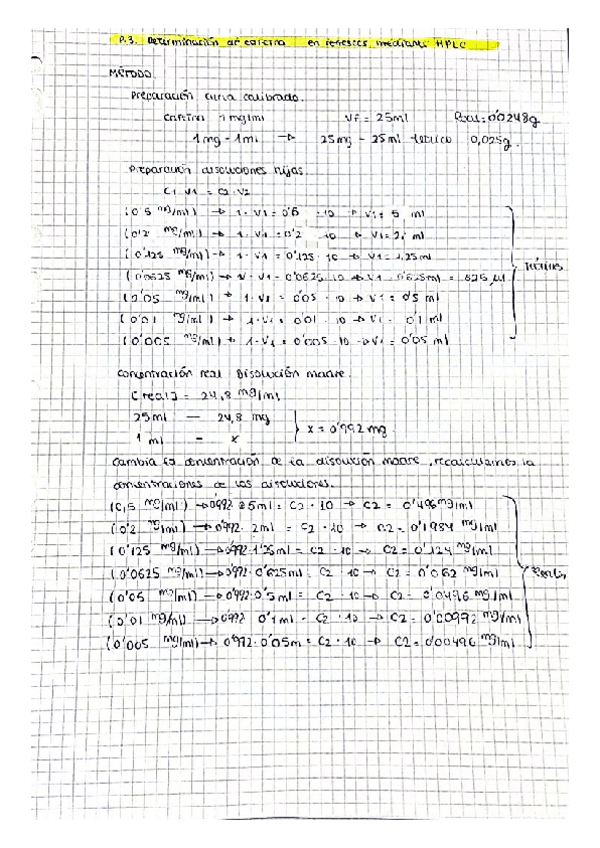 P.3. Determinación de cafeína en refrescos mediante HPLC
MÉTODO.
Preparación curva calibrado.
Cafeína 1 mg/ml Vf = 25ml Real = 0'0248g
1 mg - 1ml -> 25mg - 25ml teórico 0,025g.
Preparación disoluciones hijas.
C1 V1 = C2 · V2
(0'5 mg/ml) -> 1 · V1 = 0'5 · 10 -> V1 = 5 ml
(0'2 mg/ml) -> 1 · V1 = 0'2 · 10 -> V1 = 2 ml
(0'125 mg/ml) -> 1 · V1 = 0'125 · 10 -> V1 = 1,25ml
(0'0625 mg/ml) -> 1 · V1 = 0'0625 · 10 -> V1 = 0'625ml = 625 µl
(0'05 mg/ml) -> 1 · V1 = 0'05 · 10 -> V1 = 0'5 ml
(0'01 mg/ml) -> 1 · V1 = 0'01 · 10 -> V1 = 0'1 ml
(0'005 mg/ml) -> 1 · V1 = 0'005 · 10 -> V1 = 0'05 ml
Teóricos
Concentración real Disolución madre.
[real] = 24,8 mg/ml
25ml — 24,8 mg
1 ml - x
x = 0'992 mg.
Cambia la concentración de la disolución madre, recalculamos la
concentraciones de las disoluciones.
(0,5 mg/ml) -> 0'992 · 5ml = C2 · 10 -> C2 = 0'496 mg/ml
(0'2 mg/ml) -> 0'992 · 2ml = C2 · 10 -> C2 = 0'1984 mg/ml
(0'125 mg/ml) -> 0'992 · 1'25ml = C2 · 10 -> C2 = 0'124 mg/ml
(0'0625 mg/ml) -> 0'992 · 0'625ml = C2 · 10 -> C2 = 0'062 mg/ml
(0'05 mg/ml) -> 0'992 · 0'5ml = C2 · 10 -> C2 = 0'0496 mg/ml
(0'01 mg/ml) -> 0'992 · 0'1ml = C2 · 10 -> C2 = 0'00992 mg/ml
(0'005 mg/ml) -> 0'992 · 0'05m = C2 · 10 -> C2 = 0'00496 mg/ml